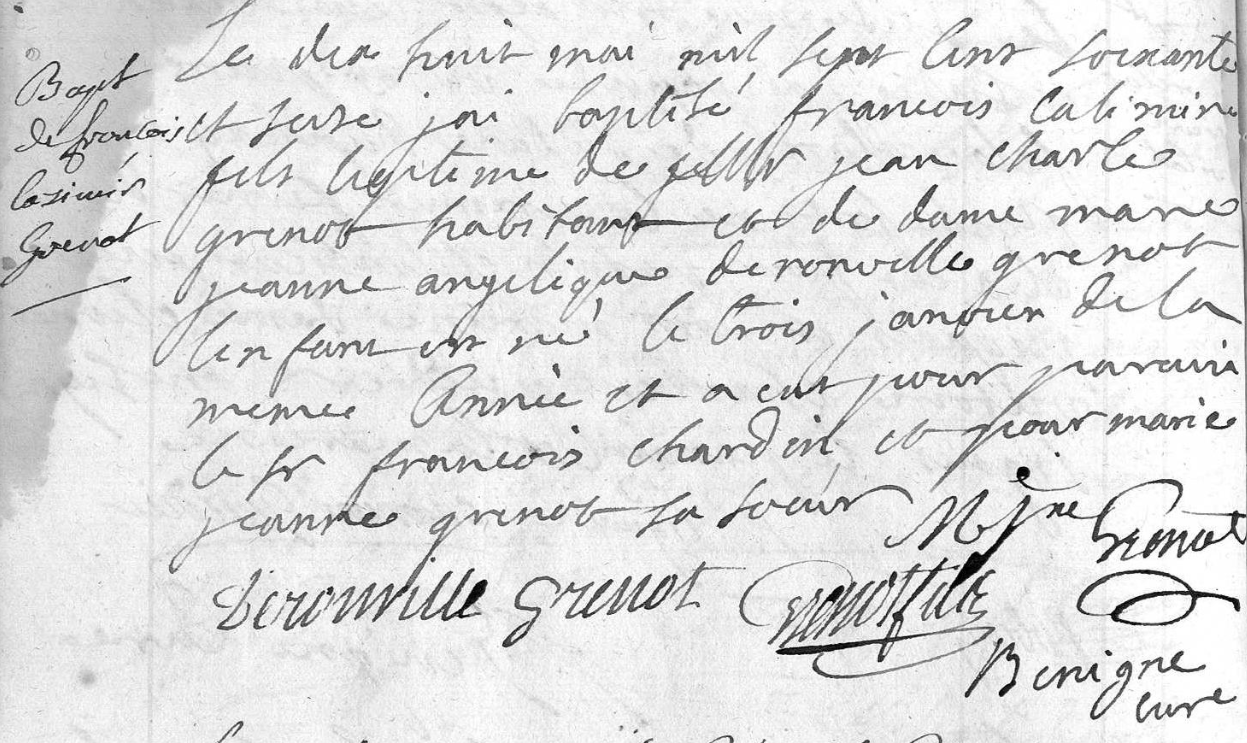 Bapt
de francois
casimir
Grenot
Le dix huit mai mil sept cent soixante
et seize jai baptisé francois Casimire
fils legitime de jean charle
grenot habitant et de dame marie
jeanne angelique deronville grenot
lenfant est né le trois janvier de la
meme Année et a eut pour parain
le sr francois chardin et pour marie
jeanne grenot sa soeur M Jne Grenot
Deronville Grenot Grenot fils
Benigne
cure